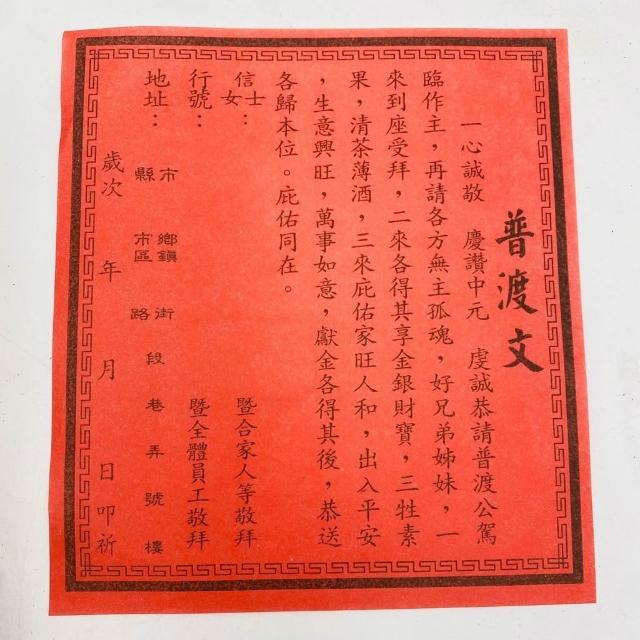 普渡文
一心誠敬 慶讚中元 虔誠恭請普渡公駕
臨作主，再請各方無主孤魂，好兄弟姊妹，一
來到座受拜，二來各得其享金銀財寶，三牲素
果，清茶薄酒，三來庇佑家旺人和，出入平安
，生意興旺，萬事如意，獻金各得其後，恭送
各歸本位。庇佑同在。
信士女： 暨合家人等敬拜
行號： 暨全體員工敬拜
地址： 縣市 鄉鎮市區 街路 段 巷 弄 號 樓
歲次 年 月 日叩祈